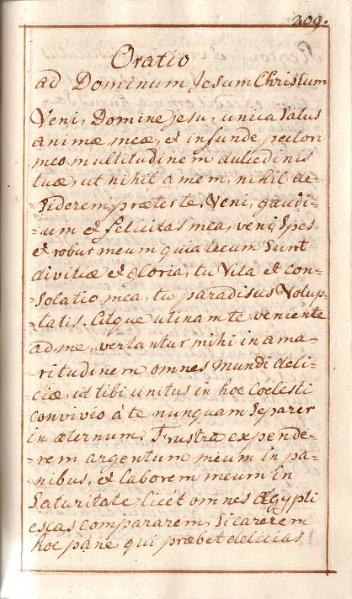 209.
Oratio
ad Dominum Jesum Christum
Veni, Domine Jesu, unica Salus
animæ meæ, et infunde pectori
meo multitudinem dulcedinis
tuæ, ut nihil amem, nihil de-
-siderem præter te, Veni, gaudi-
-um et felicitas mea, veni, Spes
et robur meum quia tecum Sunt
divitiæ et gloria, tu Vita et con-
-Solatio mea, tu paradisus Volup-
-tatis. Atque utinam te veniente
ad me, vertantur mihi in ama-
-ritudinem omnes Mundi deli-
ciæ, ut tibi unitus in hoc Coelesti
convivio à te nunquam Separer
in æternum; Frustra expende-
-rem argentum meum in pa-
-nibus, et laborem meum in
Saturitate licet omnes Ægypti
escas compararem, Si carerem
hoc pane qui præbet delicias